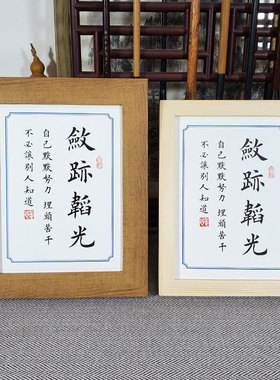 斂跡韜光
自己默默努力 埋頭苦干
不必讓別人知道
斂跡韜光
自己默默努力 埋頭苦干
不必讓別人知道